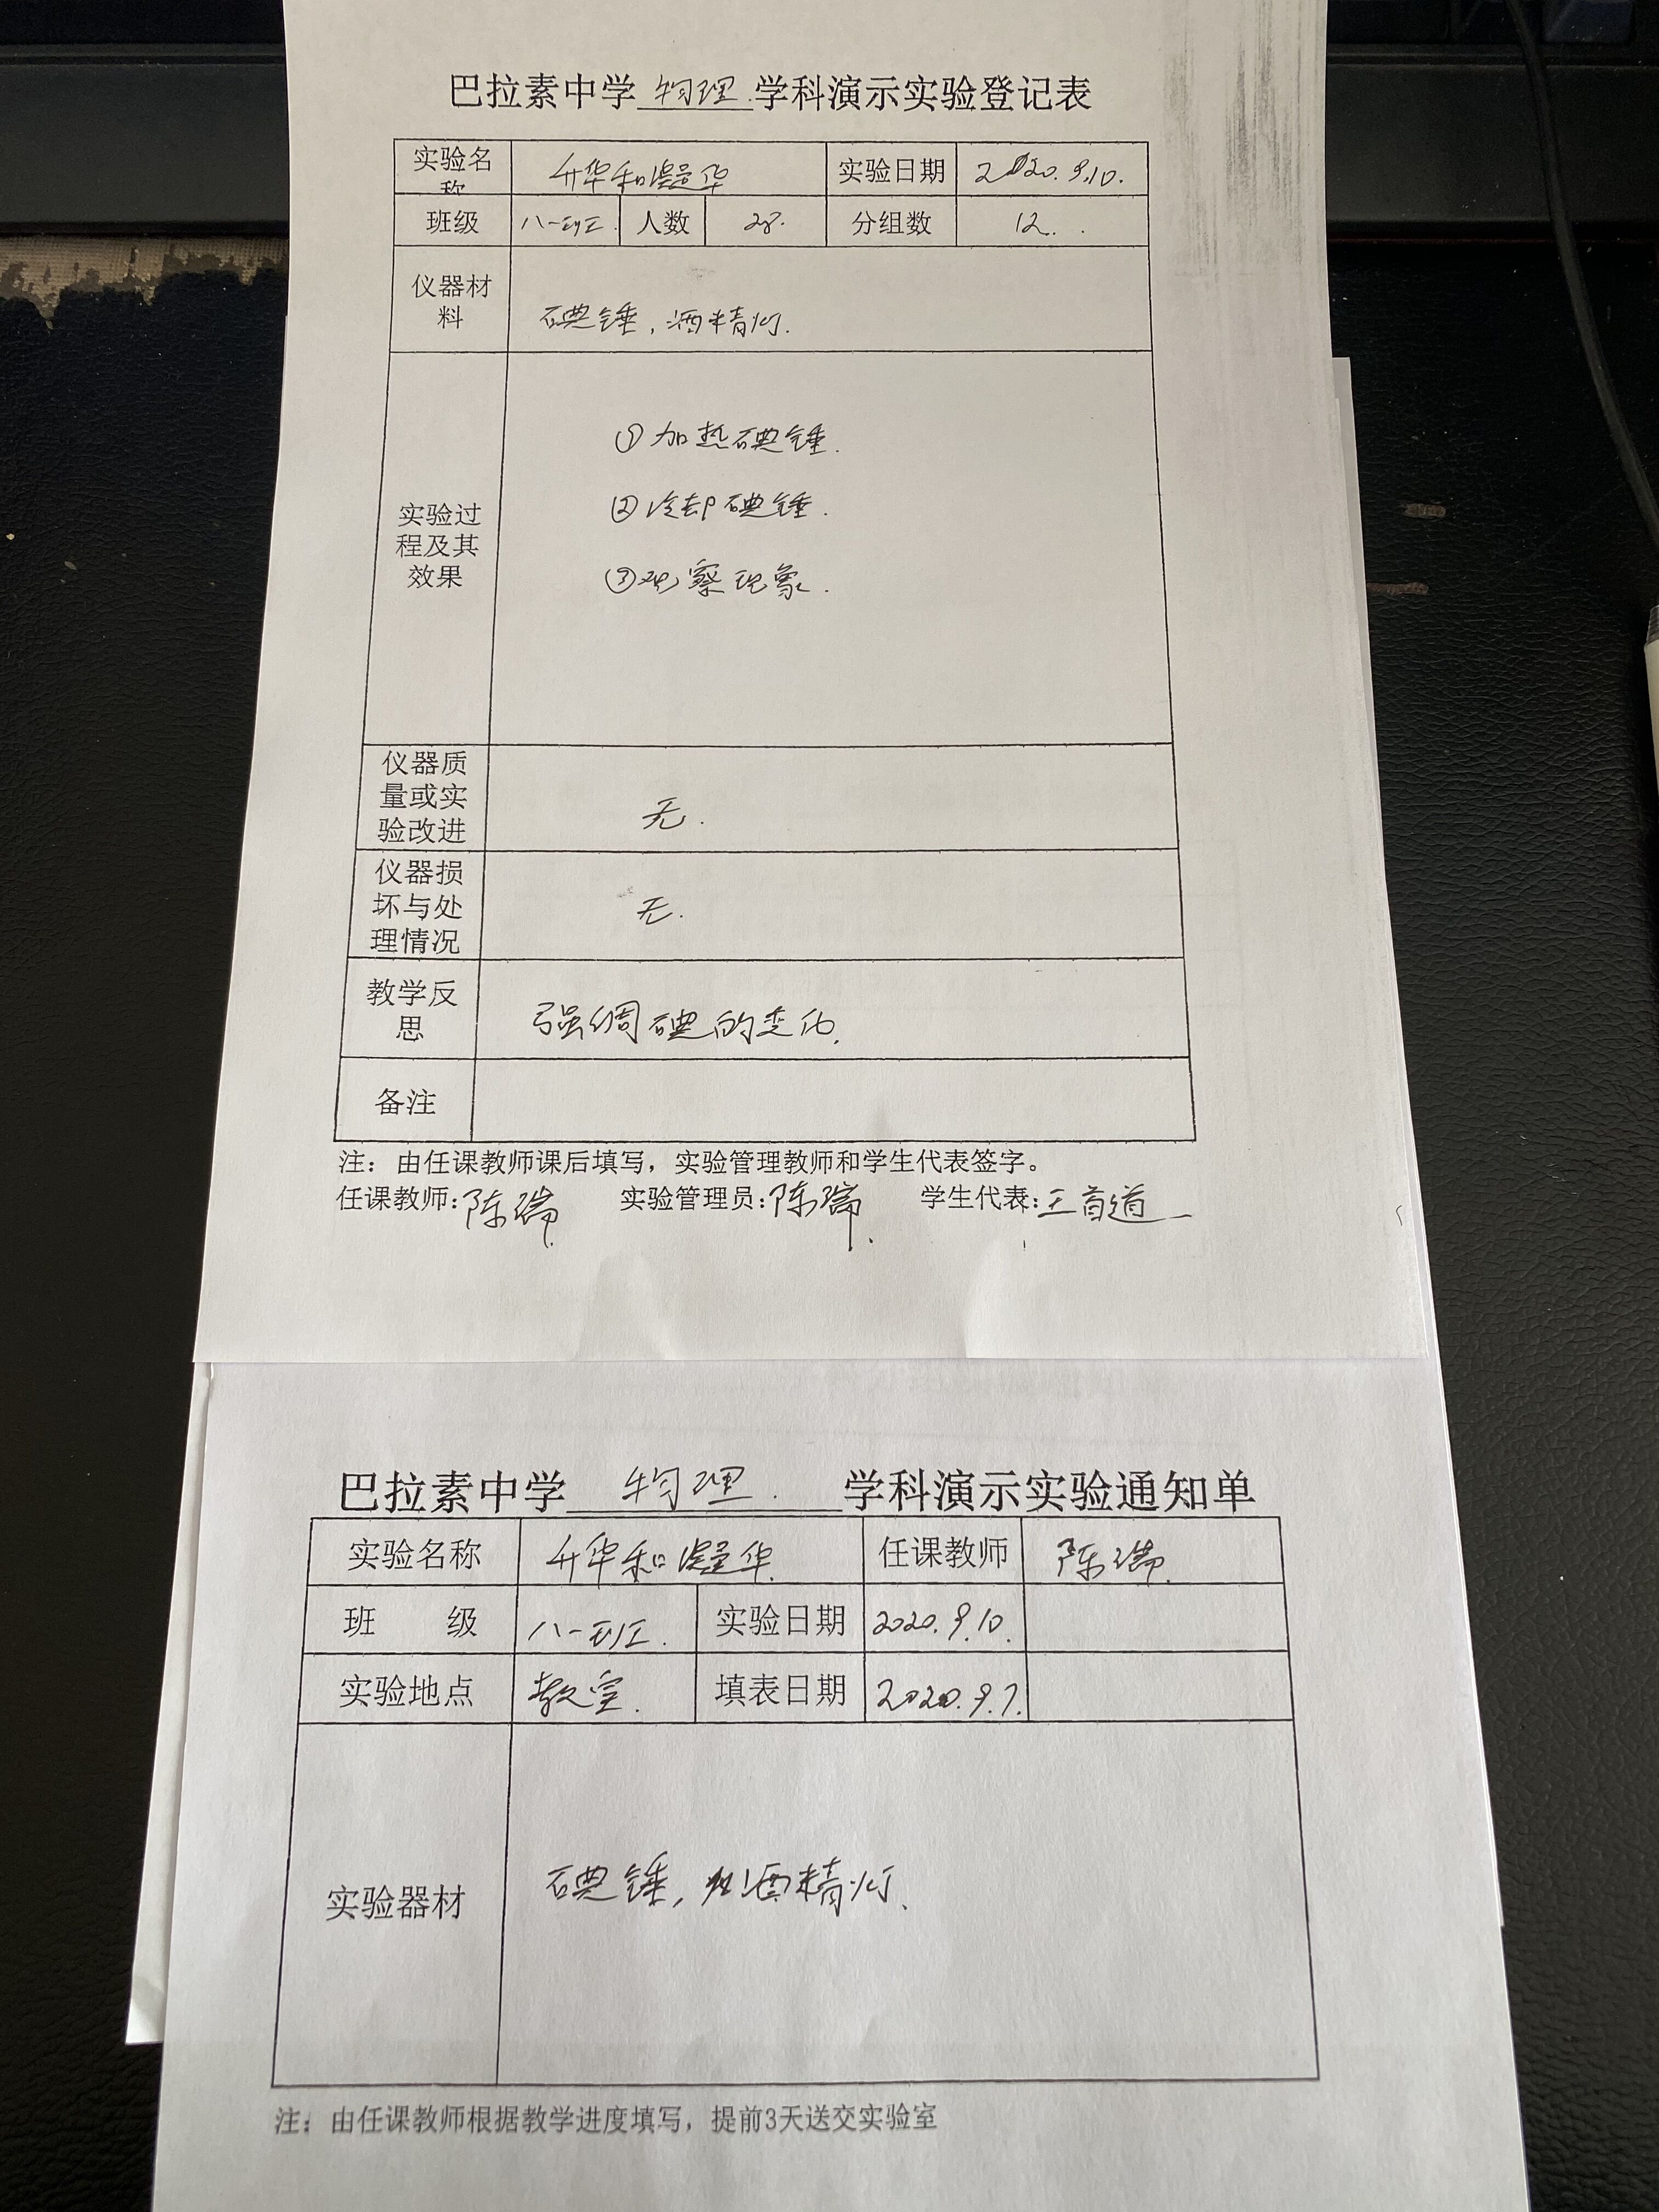 巴拉素中学 物理 学科演示实验登记表
实验名称 升华和凝华 实验日期 2020.9.10.
班级 八一班 人数 28. 分组数 12.
仪器材料 碘锤，酒精灯.
实验过程及其效果
①加热碘锤.
②冷却碘锤.
③观察现象.
仪器质量或实验改进 无.
仪器损坏与处理情况 无.
教学反思 强调碘的变化.
备注
注：由任课教师课后填写，实验管理教师和学生代表签字。
任课教师:陈瑞 实验管理员:陈瑞 学生代表:王首道
巴拉素中学 物理. 学科演示实验通知单
实验名称 升华和凝华 任课教师 陈瑞
班 级 八一班. 实验日期 2020.9.10.
实验地点 教室. 填表日期 2020.9.7.
实验器材 碘锤，酒精灯.
注：由任课教师根据教学进度填写，提前3天送交实验室